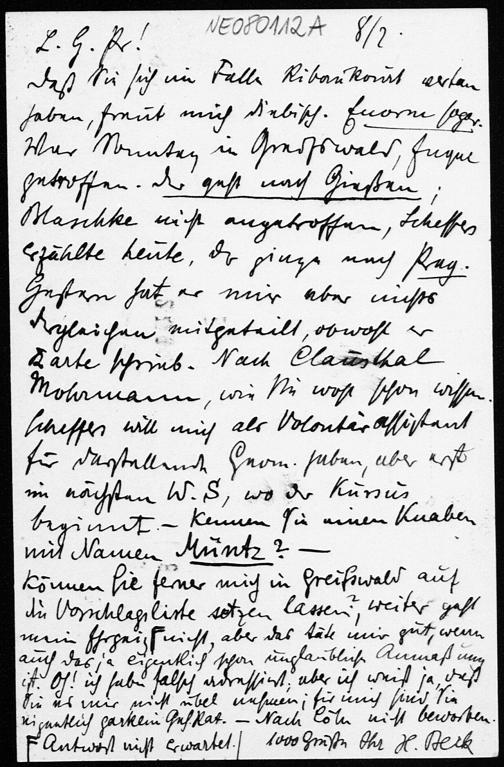 NE080112A
L. G. Pr! 8/2.
Daß Sie sich im Falle Ribaukourt
haben, freut mich diebisch. Enorm sogar.
War Sonntag in Greifswald, Engel
getroffen. Der geht nach Gießen;
Blaschke nicht angetroffen, Scheffers
erzählte heute, der ginge nach Prag.
Gestern hat er mir aber nichts
dergleichen mitgeteilt, obwohl er
Karte schrieb. Nach Clausthal
Mohrmann, wie Sie wohl schon wissen.
Scheffers will mich als Volontärassistent
für darstellende Geom. haben, aber erst
im nächsten W.S, wo der Kursus
beginnt. – Kennen Sie einen Knaben
mit Namen Müntz? –
Können Sie ferner mich in Greifswald auf
die Vorschlagsliste setzen lassen?, weiter geht
mein Ehrgeiz nicht, aber das täte mir gut, wenn
auch das ja eigentlich schon unglaubliche Anmaßung
ist. Oh! ich habe falsch adressiert; aber ich weiß ja, daß
Sie es mir nicht übel nehmen; für mich sind Sie
eigentlich garkein Geh Rat. – Nach Cöln nicht beworben.
Γ Antwort nicht erwartet! 1000 Grüße Ihr H. Beck